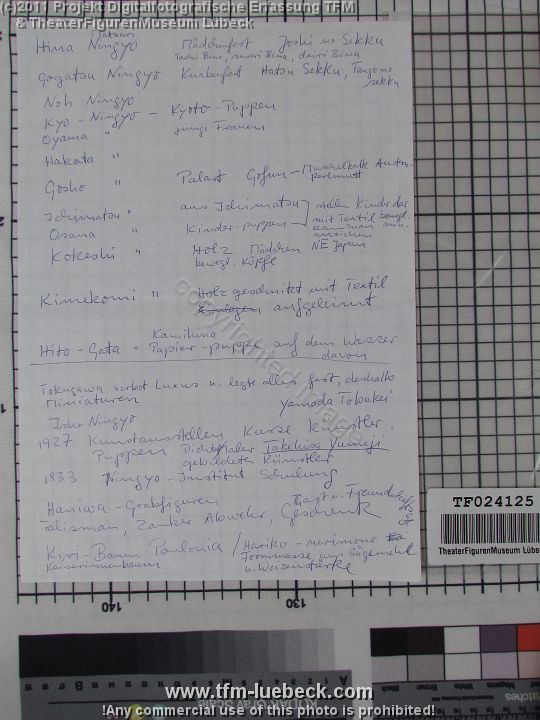 (c)2011 Projekt Digitalfotografische Erfassung TFM
& TheaterFigurenMuseum Lübeck
Hina Ningyo Mädchenfest Joshi no Sekku
Tachi Bina, suwari Bina, dairi Bina
Gogatsu Ningyo Knabenfest Hatsu Sekku, Tango no
sekku
Noh Ningyo
Kyo - Ningyo - Kyoto-Puppen
Oyama " junge Frauen
Hakata "
Gosho " Palast Gofun - Muschelkalk Austern-
perlmutt
Ichimatsu " aus Ichimatsu stellen Kinder dar
Osana " Kinder-puppen mit Textil bewegl.
kann man an u.
anziehen
Kokeshi " Holz Mädchen NE Japan
bewegl. Köpfe
Kimekomi " Holz geschnitzt mit Textil
aufgeleimt
Kamihina
Hito-Gata = Papier-puppe auf dem Wasser
davon
Tokugawa verbot Luxus u. legte alles fest, deshalb
Miniaturen Yamada Tokubei
Isho Ningyo
1927 Kunstausstellen Kurse Künstler,
Puppen Dichter Maler Takehisa Yumeji
gebildeten Künstler
1933 Ningyo-Institut Schulung
Haniwa - Grabfiguren Gast u. Freundschafts
Talisman, Zauber Abwehr, Geschenk
Kiri-Baum Paulonia / Hariko - nerimono
Kaiserinnenbaum Formmasse aus Sägemehl
u. Weizenstärke
140 130
TF024125
TheaterFigurenMuseum Lübeck
www.tfm-luebeck.com
!Any commercial use of this photo is prohibited!
copyrighted image